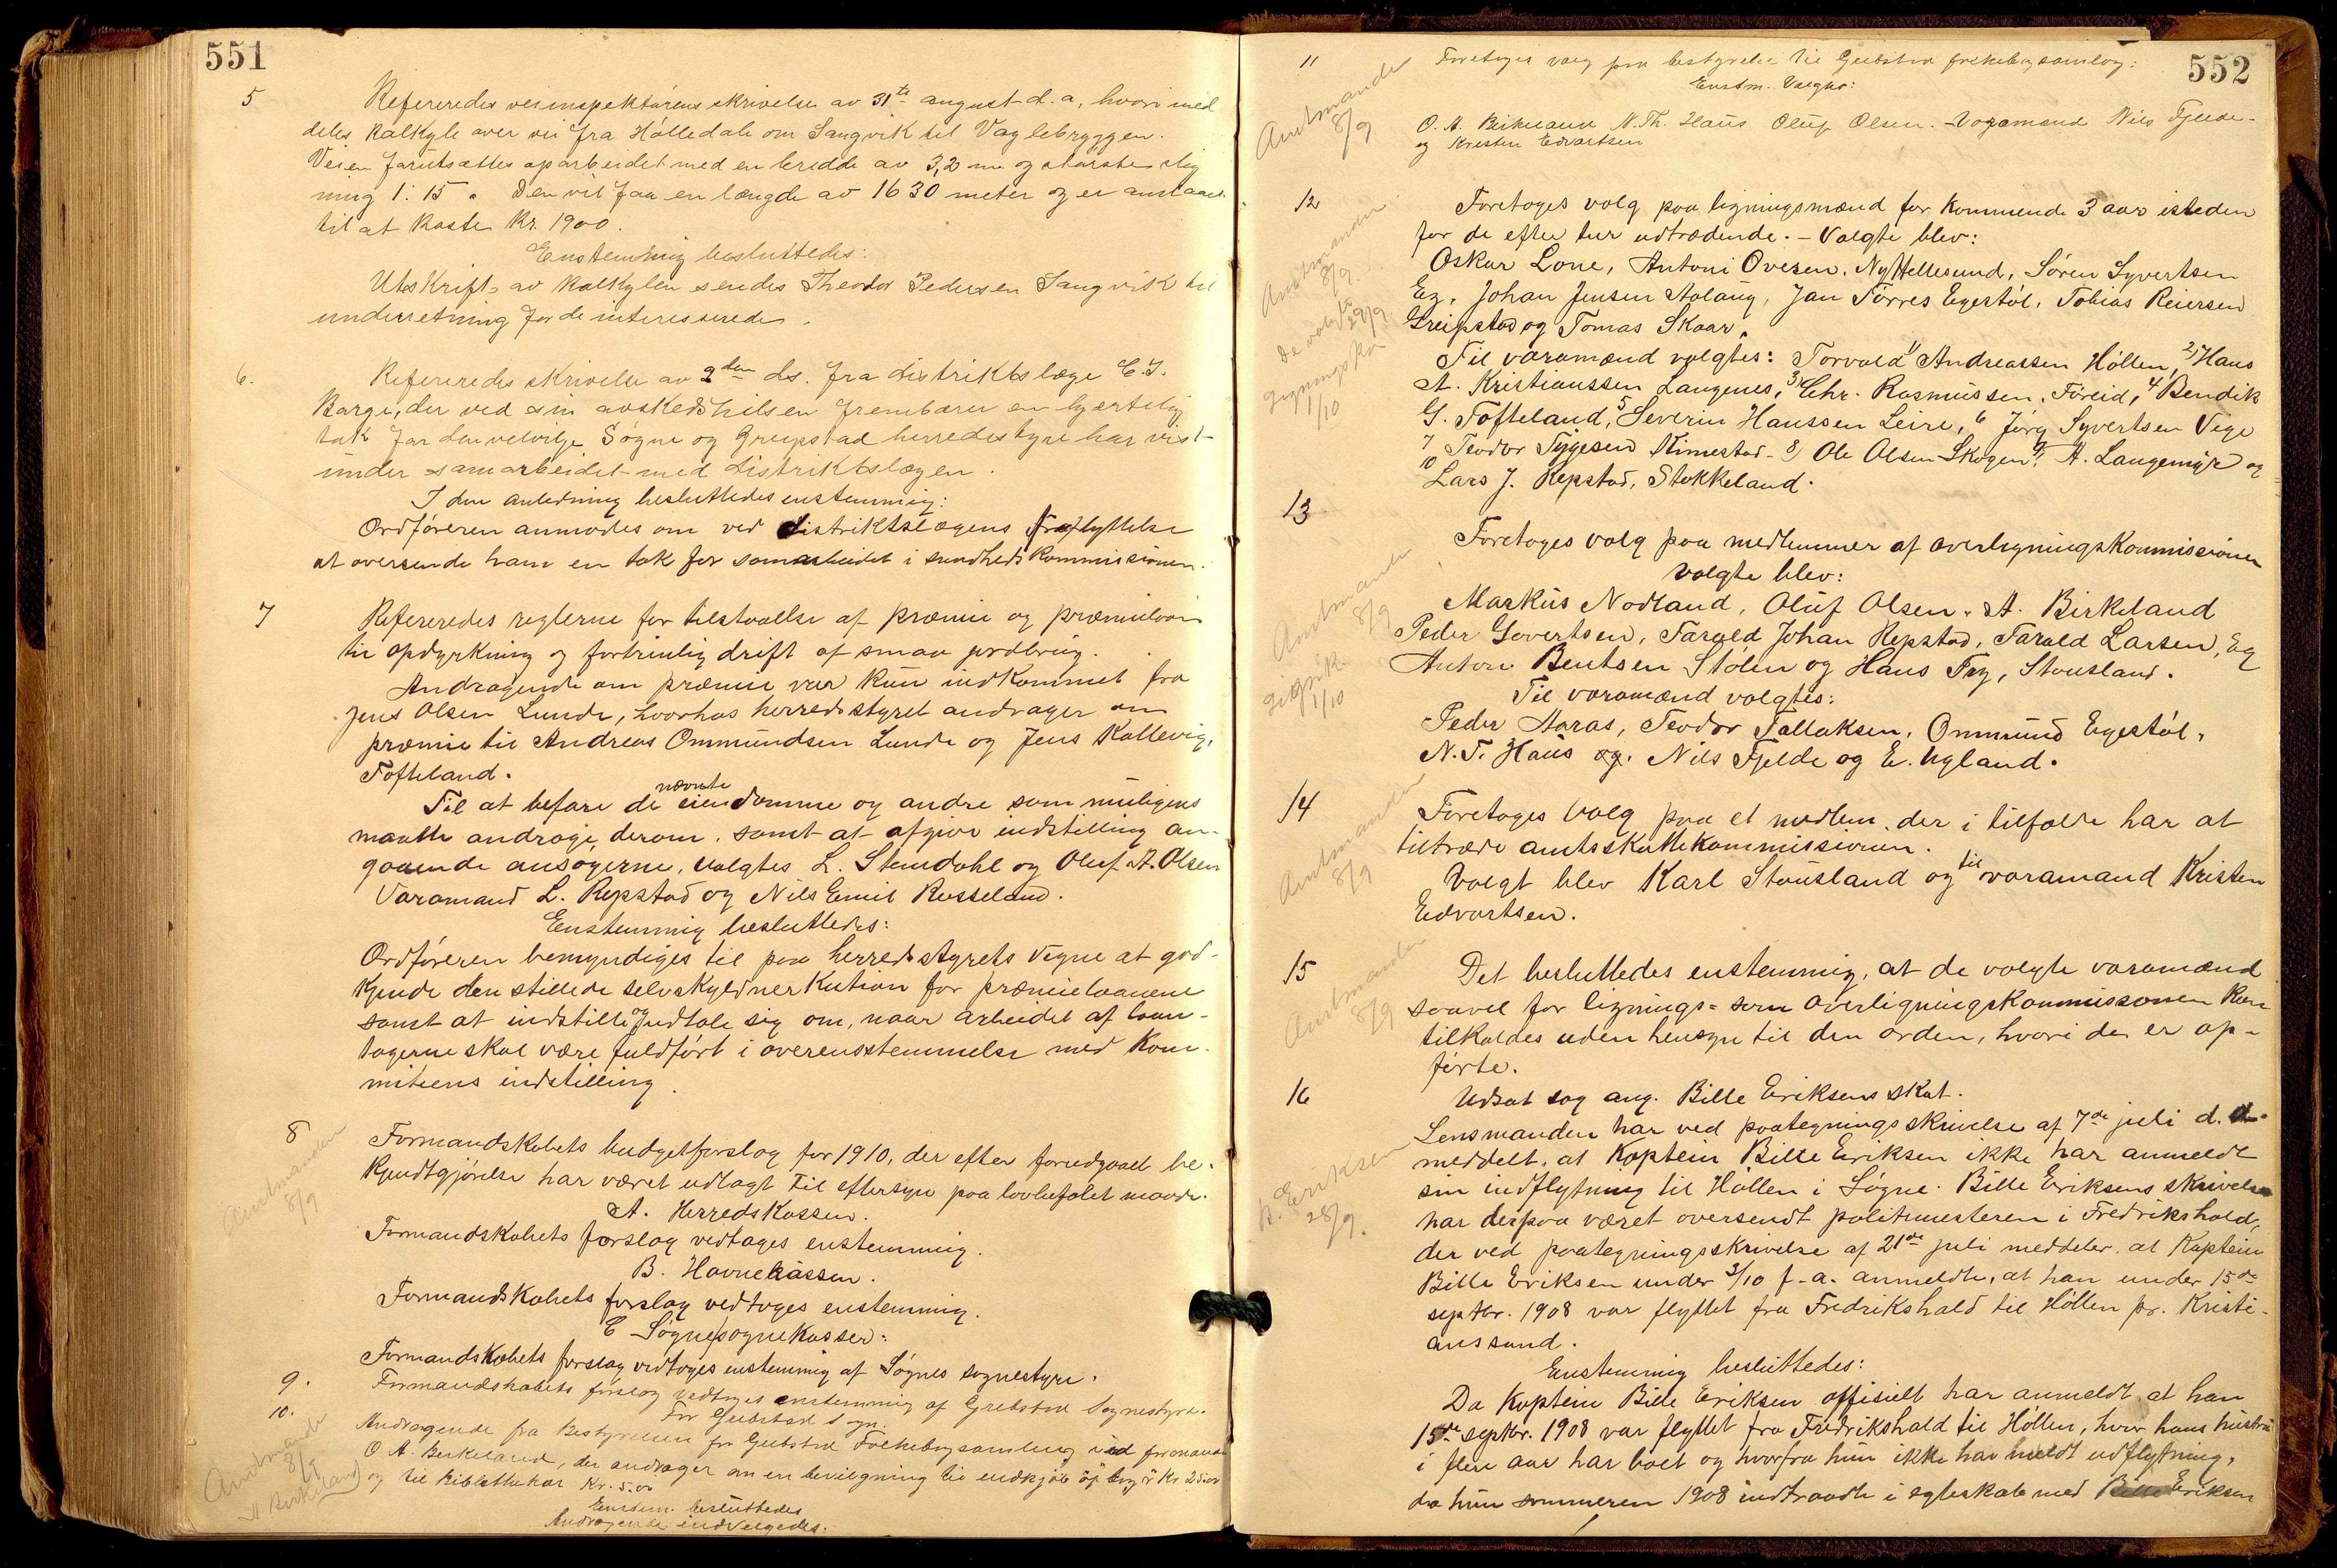 551
5
Refereredes veiinspektørens skrivelse av 31te august d. a, hvori med
deles kalkyle over vei fra Hølledale om Langvik til Vaglebryggen.
Veien forutsættes oparbeidet med en bredde av 3,2 m og største stig
ning 1:15. Den vil faa en længde av 1630 meter og er anslaaet
til at koste Kr. 1900.
Enstemmig besluttedes:
Utskrift av kalkylen sendes Theodor Pedersen Langvik til
underretning for de interesserede.
6.
Refereredes skrivelse av 2den ds. fra distriktslæge C. J.
Borge, der ved sin avskedshilsen frembærer en hjertelig
tak for den velvilje Søgne og Greipstad herredsstyre har vist
under samarbeidet med distriktslægen.
I den anledning besluttedes enstemmig:
Ordføreren anmodes om ved distriktslægens fraflyttelse
at oversende ham en tak for samarbeidet i sundhedskommissionen.
7
Refereredes reglerne for tilstaaelse af præmie og præmielaan
til opdyrkning og fortrinlig drift af smaa jordbrug.
Andragende om præmie var kun indkommet fra
Jens Olsen Lunde, hvorhos herredsstyret andrager om
præmie til Andreas Ommundsen Lunde og Jens Kallevig,
Tofteland.
Til at befare de nævnte eiendomme og andre som muligens
maatte androge derom, samt at afgive indstilling an-
gaaende ansøgerne, valgtes L. Stendahl og Oluf A. Olsen
Varamand L. Repstad og Nils Emil Rosseland.
Enstemmig besluttedes:
Ordføreren bemyndiges til paa herredsstyrets vegne at god-
kjende den stillede selvskyldnerkaution for præmielaanene
samt at indstille og udtale sig om, naar arbeidet af laan-
tagerne skal være fuldført i overensstemmelse med kom-
miteens indstilling.
8
Amtmanden
8/9
Formandskabets budgetforslag for 1910, der efter forudgaaet be-
kjendtgjørelse har været udlagt til eftersyn paa lovbefalet maade.
A. Herredskassen.
Formandskabets forslag vedtages enstemmig.
B. Havnekassen.
Formandskabets forslag vedtoges enstemmig.
C Søgne sognekasser:
Formandskabets forslag vedtoges enstemmig af Søgnes sognestyre.
9.
Formandskabets forslag vedtoges enstemmig af Greibstad Sognestyre.
For Greibstad Sogn.
10.
Amtmanden
8/9
A Birkeland
Andragende fra Bestyrelsen for Greibstad Folkebogsamling ved formanden
O A. Berkeland, der andrager om en bevilgning til indkjøb af bøger Kr 25.00
og til Bibliothekar Kr. 5.00
Enstem. besluttedes
Andragende indvilgedes.
552
11
Amtmanden
8/9
Foretoges valg paa bestyrelse til Greibstad folkebogsamling:
Enstm. Valgtes:
O. A. Birkeland N. Th. Haus Oluf Olsen. - Varamænd Nils Fjelde -
og Kristen Edvartsen
12
Amtmanden
8/9.
De valgte
29/9.
Ligningsk.
1/10
Foretoges valg paa ligningsmænd for kommende 3 aar isteden
for de efter tur udtrædende. - Valgte blev:
Oskar Lone, Antoni Oversen, Ny Hellesund, Søren Syvertsen
Eg, Johan Jensen Aolaug, Jan Tørres Egestøl, Tobias Reiersen
Greipstad og Tomas Skaar.
Til varamænd valgtes: Torvald 1) Andreassen Høllen, 2) Hans
A. Kristianssen Langenes, 3) Chr. Rasmussen, Føreid, 4 Bendik
G. Tofteland, 5 Severin Hanssen Leire, 6 Jørg Syvertsen Vege
7 Teodor Tygesen Kimestad - 8) Ole Olsen Skogen, 9 A. Langemyr og
10 Lars J. Repstad, Stokkeland.
13
Amtmanden
8/9
Lign.k.
1/10
Foretoges valg paa medlemmer af overligningskommissionen
Valgte blev:
Markus Nodland, Oluf Olsen. A. Birkeland
Peder Govertsen, Tarald Johan Repstad, Tarald Larsen, Eg
Anton Bentsen Stølen og Hans Try, Stousland.
Til varamænd valgtes:
Peder Aaras, Teodor Tallaksen, Ommund Egestøl,
N. T. Haus og. Nils Fjelde og E. Ugland.
14
Amtmanden
8/9
Foretoges valg paa et medlem, der i tilfælde har at
tiltræde amtsskattekommissionen.
Valgt blev Karl Stousland og til varamand Kristen
Edvartsen.
15
Amtmanden
8/9
Det besluttedes enstemmig, at de valgte varamænd
saavel for lignings- som overligningskommissonen kan
tilkaldes uden hensyn til den orden, hvori de er op-
førte.
16
B. Eriksen
28/9.
Udsat sag ang. Bille Eriksens skat.
Lensmanden har ved paategningsskrivelse af 7de juli d. a.
meddelt, at Kaptein Bille Eriksen ikke har anmeldt
sin indflytning til Høllen i Søgne. Bille Eriksens skrivelse
har derpaa været oversendt politimesteren i Fredrikshald,
der ved paategningsskrivelse af 21de juli meddeler, at Kaptein
Bille Eriksen under 3/10 f. a. anmeldte, at han under 15de
septbr. 1908 var flyttet fra Fredrikshald til Høllen pr. Kristi-
anssand.
Enstemmig besluttedes:
Da Kaptein Bille Eriksen offisielt har anmeldt at han
15de septbr. 1908 var flyttet fra Fredrikshald til Høllen, hvor hans hustru
i flere aar har boet og hvorfra hun ikke har meldt udflytning,
da hun sommeren 1908 indtraadte i egteskab med Bille Eriksen